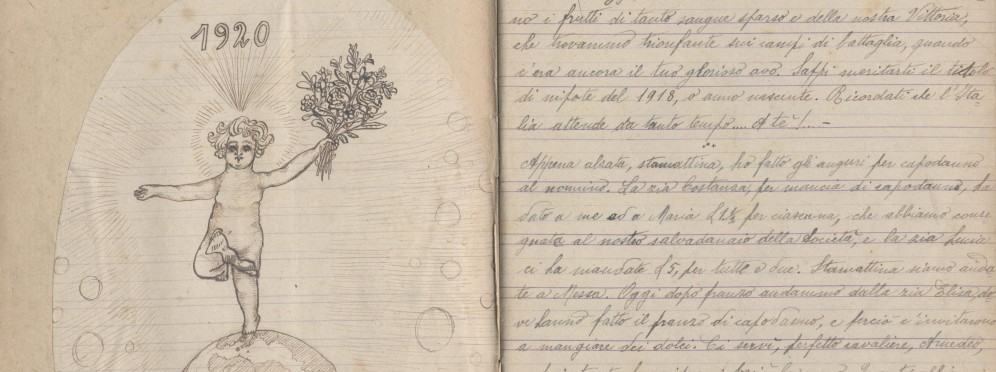 1920
no i frutti di tanto sangue sparso e della nostra Vittoria,
che trovammo trionfante sui campi di battaglia, quando
c'era ancora il tuo glorioso avo. Sappi meritarti il titolo
di nipote del 1918, o anno nascente. Ricordati che l'Ita
lia attende da tanto tempo.... A te!..–
Appena alzata, stamattina, ho fatto gli auguri per capodanno
al nonnino. La zia Costanza, per mancia di capodanno, ha
dato a me ed a Maria per ciascuna, che abbiamo conse
gnate al nostro salvadanaio della Società, e la zia Lucia
ci ha mandate £5, per tutte e due. Stamattina siamo anda
te a Messa. Oggi dopo pranzo andammo dalla zia Elisa, do
ve hanno fatto il pranzo di capodanno, e perciò c'invitarono
a mangiare dei dolci. Ci servì, perfetto cavaliere, Amedeo,